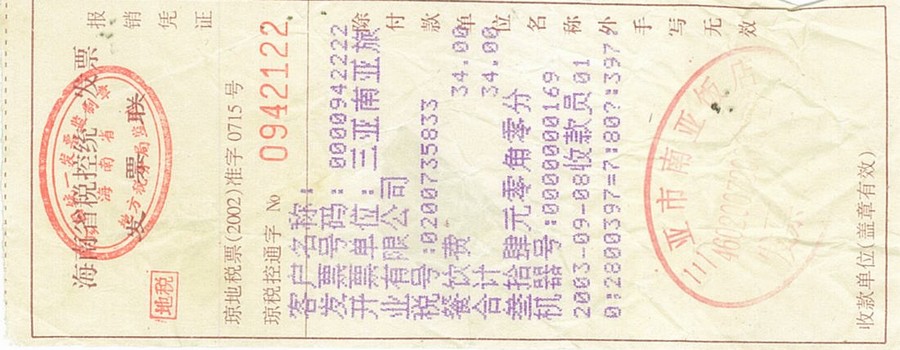 海南省税控统一发票
发票联
报销凭证
地税
琼地税票(2002)准字0715号
琼税控通字 No 0942122
客户名称:
发票号码:000942222
开票单位:三亚南亚旅
业有限公司
税号:0200735833
餐饮费 34.00
合计 34.00
叁拾肆元零角零分
机器号:000000169
2003-09-08收款员01
0:2800397=7:80?:397
除付款单位名称外手写无效
三亚市南亚饭店
收款单位(盖章有效)